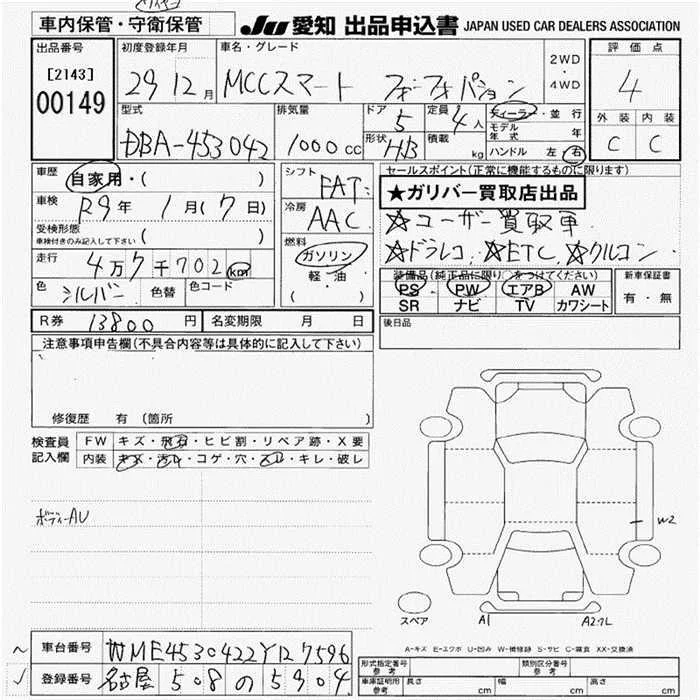 車内保管・守衛保管
JU 愛知 出品申込書 JAPAN USED CAR DEALERS ASSOCIATION
出品番号
[2143]
00149
初度登録年月
29 12月
車名・グレード
MCCスマート フォーフォーパション
2WD
・
4WD
評価点
4
外装 内装
C C
型式
DBA-453042
排気量
1000 CC
ドア
5
定員
4人
形状
HB
積載
kg
ディーラー・並行
モデル年式 年
ハンドル 左・右
車歴
自家用・( )
車検
R9年 1月(7日)
受検形態
車検付きのみ記入して下さい ( )
走行
4万7千702km
色
シルバー
色替
色コード
シフト
FAT
冷房
AAC
燃料
ガソリン
軽・油
( )
セールスポイント(正常に機能するものに限ります)
★ガリバー買取店出品
☆ユーザー買取車
☆ドラレコ ☆ETC ☆クルコン
装備品(純正品に限り○をつけてください)
PS PW エアB AW
SR ナビ TV カワシート
新車保証書
有・無
R券 13800円
名変期限 月 日
後日品
注意事項申告欄(不具合内容等は具体的に記入して下さい)
修復歴 有 (箇所 )
検査員記入欄
FW キズ・飛石・ヒビ割・リペア跡・X要
内装 キズ・汚れ・コゲ・穴・スレ・キレ・破レ
ボディーAU
W2
スペア
A1
A2
A-キズ E-エクボ U-凹み W-補修跡 S-サビ C-腐食 XX-交換済
車台番号 WME4530422Y127596
登録番号 名古屋 508 の 5904
形式指定番号
参考
類別区分番号
参考
車庫証明用
参考
長さ cm
幅 cm
高さ cm